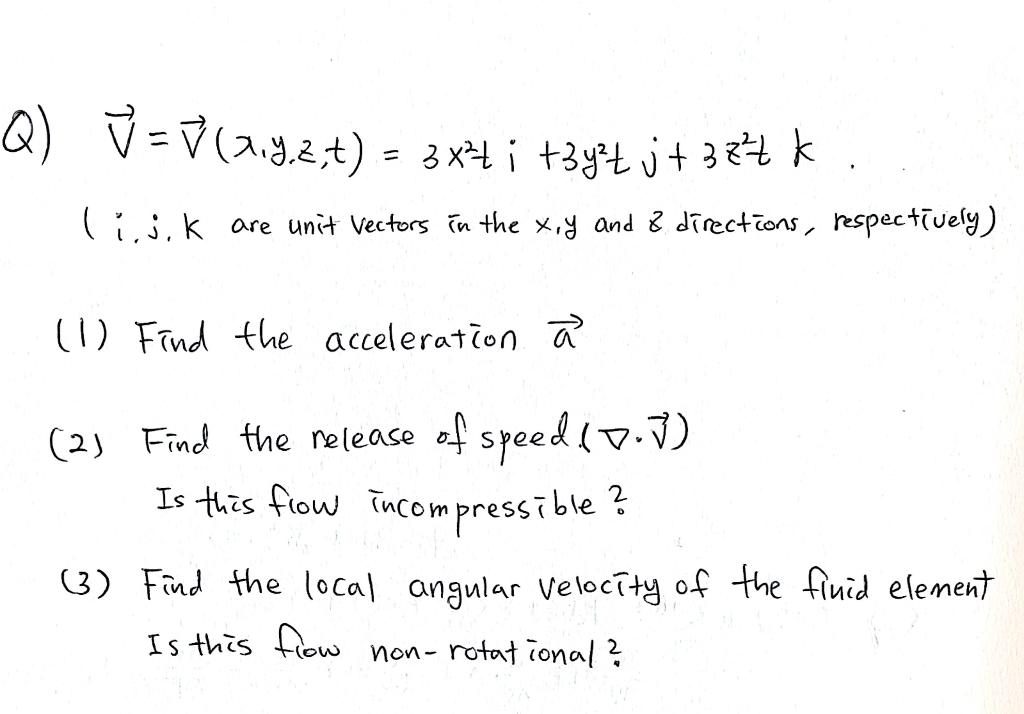 Q) V⃗ = V⃗(x,y,z,t) = 3x²t i + 3y²t j + 3z²t k .
( i, j, k are unit vectors in the x,y and z directions, respectively)
(1) Find the acceleration a⃗
(2) Find the release of speed (∇·V⃗)
Is this flow incompressible?
(3) Find the local angular velocity of the fluid element
Is this flow non-rotational?